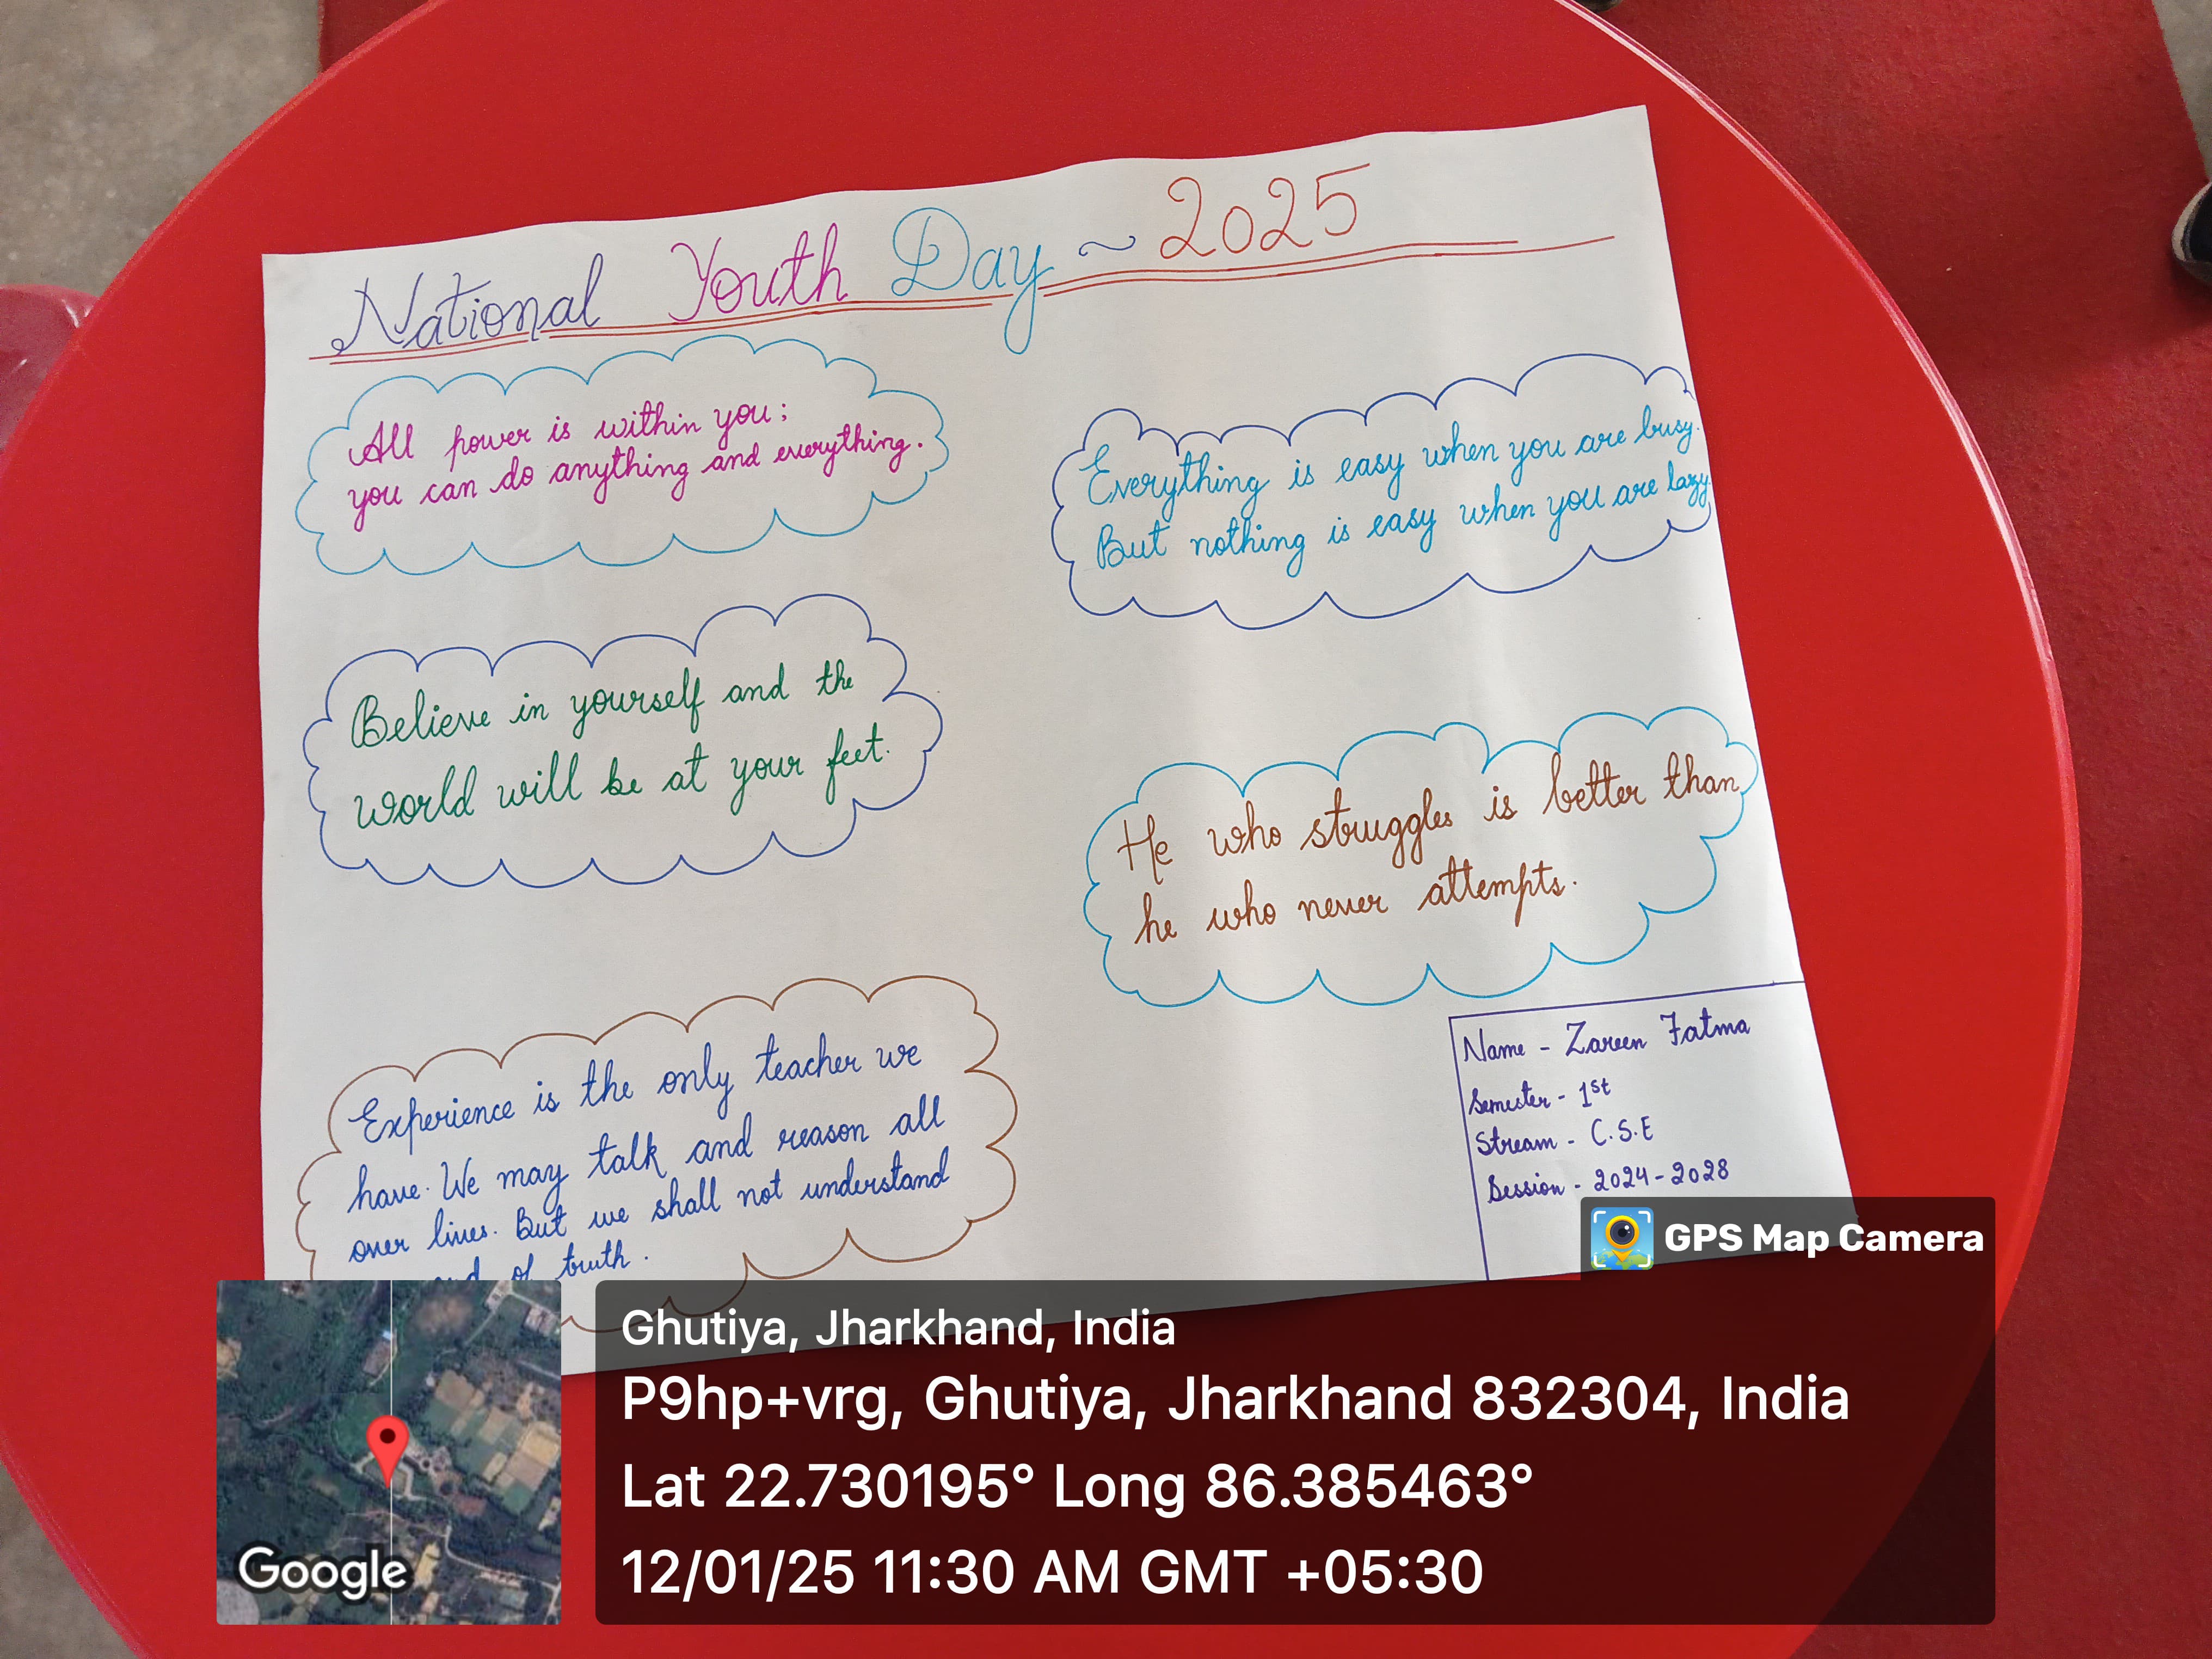 National Youth Day ~ 2025
All power is within you;
you can do anything and everything.
Everything is easy when you are busy.
But nothing is easy when you are lazy.
Believe in yourself and the
world will be at your feet.
He who struggles is better than
he who never attempts.
Experience is the only teacher we
have. We may talk and reason all
over lives. But we shall not understand
of truth.
Name - Zareen Fatma
Semester - 1st
Stream - C.S.E
Session - 2024-2028
GPS Map Camera
Google
Ghutiya, Jharkhand, India
P9hp+vrg, Ghutiya, Jharkhand 832304, India
Lat 22.730195° Long 86.385463°
12/01/25 11:30 AM GMT +05:30